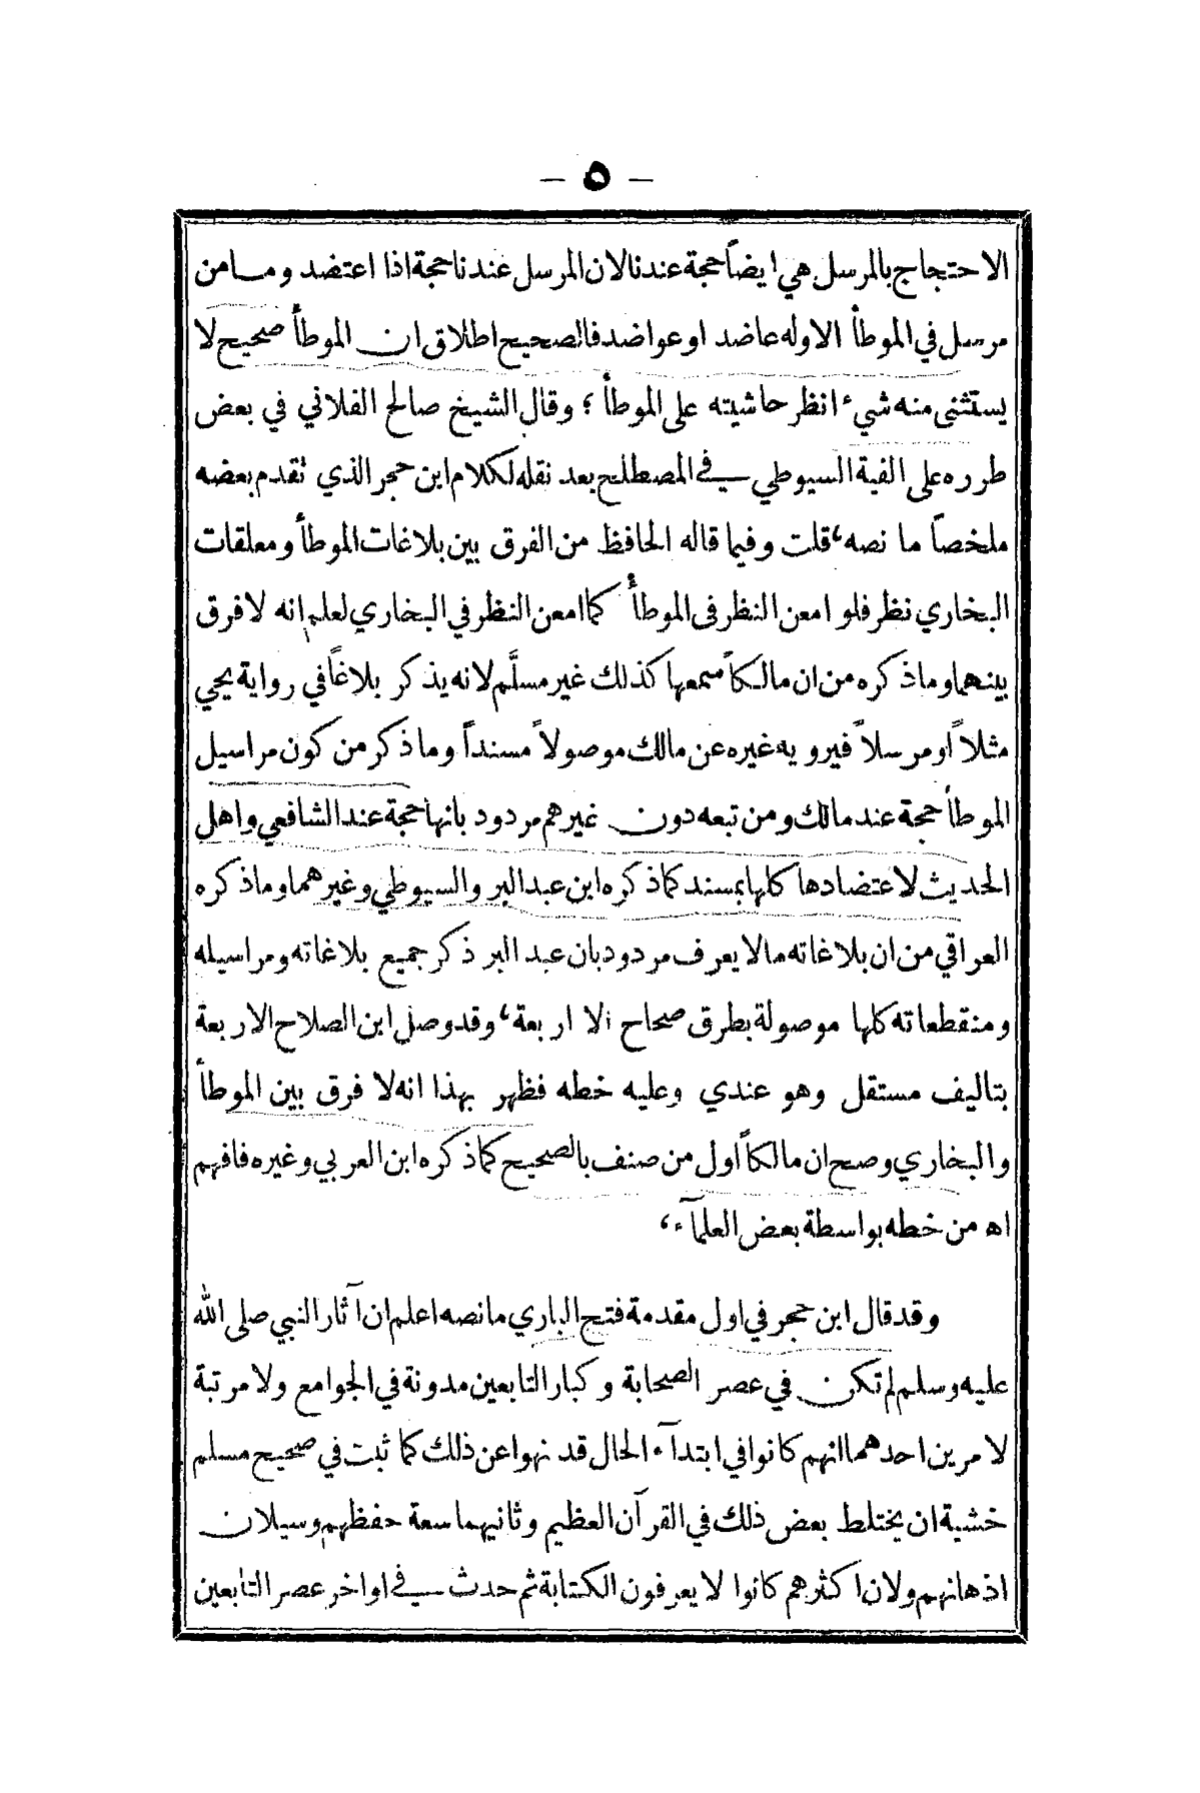 - ٥ -
الاحتجاج بالمرسل هي ايضاً حجة عندنا لان المرسل عندنا حجة اذا اعتضد وما من
مرسل في الموطأ الا وله عاضد او عواضد فالصحيح اطلاق ان الموطأ صحيح لا
يستثنى منه شيء انظر حاشيته على الموطأ ؛ وقال الشيخ صالح الفلاني في بعض
طرره على الفية السيوطي في المصطلح بعد نقله لكلام ابن حجر الذي تقدم بعضه
ملخصاً ما نصه، قلت وفيما قاله الحافظ من الفرق بين بلاغات الموطأ ومعلقات
البخاري نظر فلو امعن النظر في الموطأ كما امعن النظر في البخاري لعلم انه لا فرق
بينهما وما ذكره من ان مالكاً سمعها كذلك غير مسلَّم لانه يذكر بلاغاً في رواية يحي
مثلاً او مرسلاً فيرويه غيره عن مالك موصولاً مسنداً وما ذكر من كون مراسيل
الموطأ حجة عند مالك ومن تبعه دون غيرهم مردود بانها حجة عند الشافعي واهل
الحديث لاعتضادها كلها بمسند كما ذكره ابن عبد البر والسيوطي وغيرهما وما ذكره
العراقي من ان بلاغاته مالا يعرف مردود بان عبد البر ذكر جميع بلاغاته ومراسيله
ومنقطعاته كلها موصولة بطرق صحاح الا اربعة، وقد وصل ابن الصلاح الاربعة
بتاليف مستقل وهو عندي وعليه خطه فظهر بهذا انه لا فرق بين الموطأ
والبخاري وصح ان مالكاً اول من صنف بالصحيح كما ذكره ابن العربي وغيره فافهم
اه من خطه بواسطة بعض العلمآء،
وقد قال ابن حجر في اول مقدمة فتح الباري ما نصه اعلم ان آثار النبي صلى الله
عليه وسلم لم تكن في عصر الصحابة وكبار التابعين مدونة في الجوامع ولا مرتبة
لامرين احدهما انهم كانوا في ابتدآء الحال قد نهوا عن ذلك كما ثبت في صحيح مسلم
خشية ان يختلط بعض ذلك في القرآن العظيم وثانيهما سعة حفظهم وسيلان
اذهانهم ولان اكثرهم كانوا لا يعرفون الكتابة ثم حدث في اواخر عصر التابعين